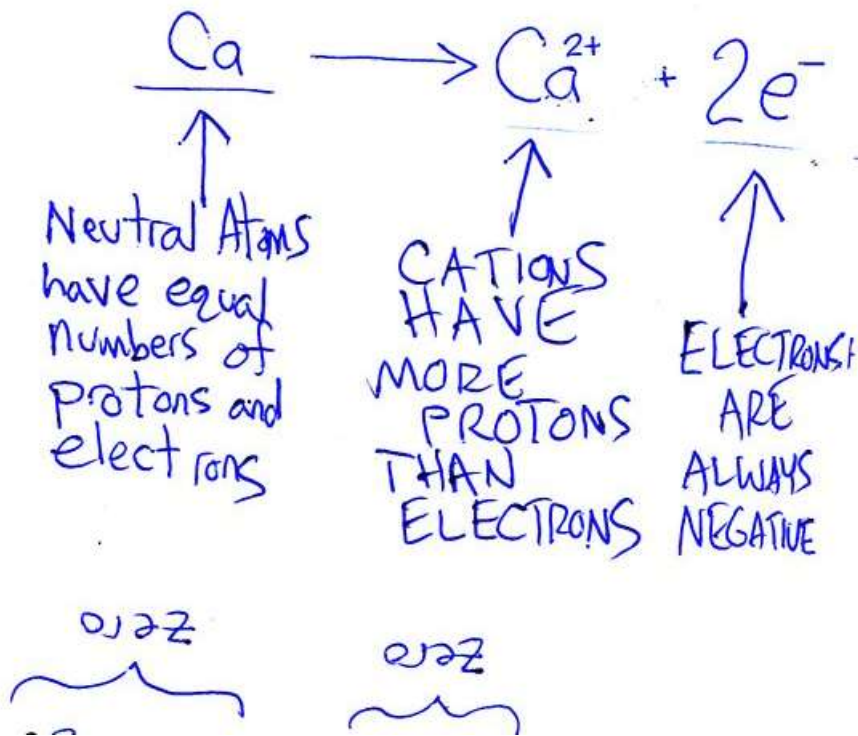 Ca → Ca²⁺ + 2e⁻
Neutral Atoms
have equal
numbers of
protons and
electrons
CATIONS
HAVE
MORE
PROTONS
THAN
ELECTRONS
ELECTRONS
ARE
ALWAYS
NEGATIVE
Zero
Zero